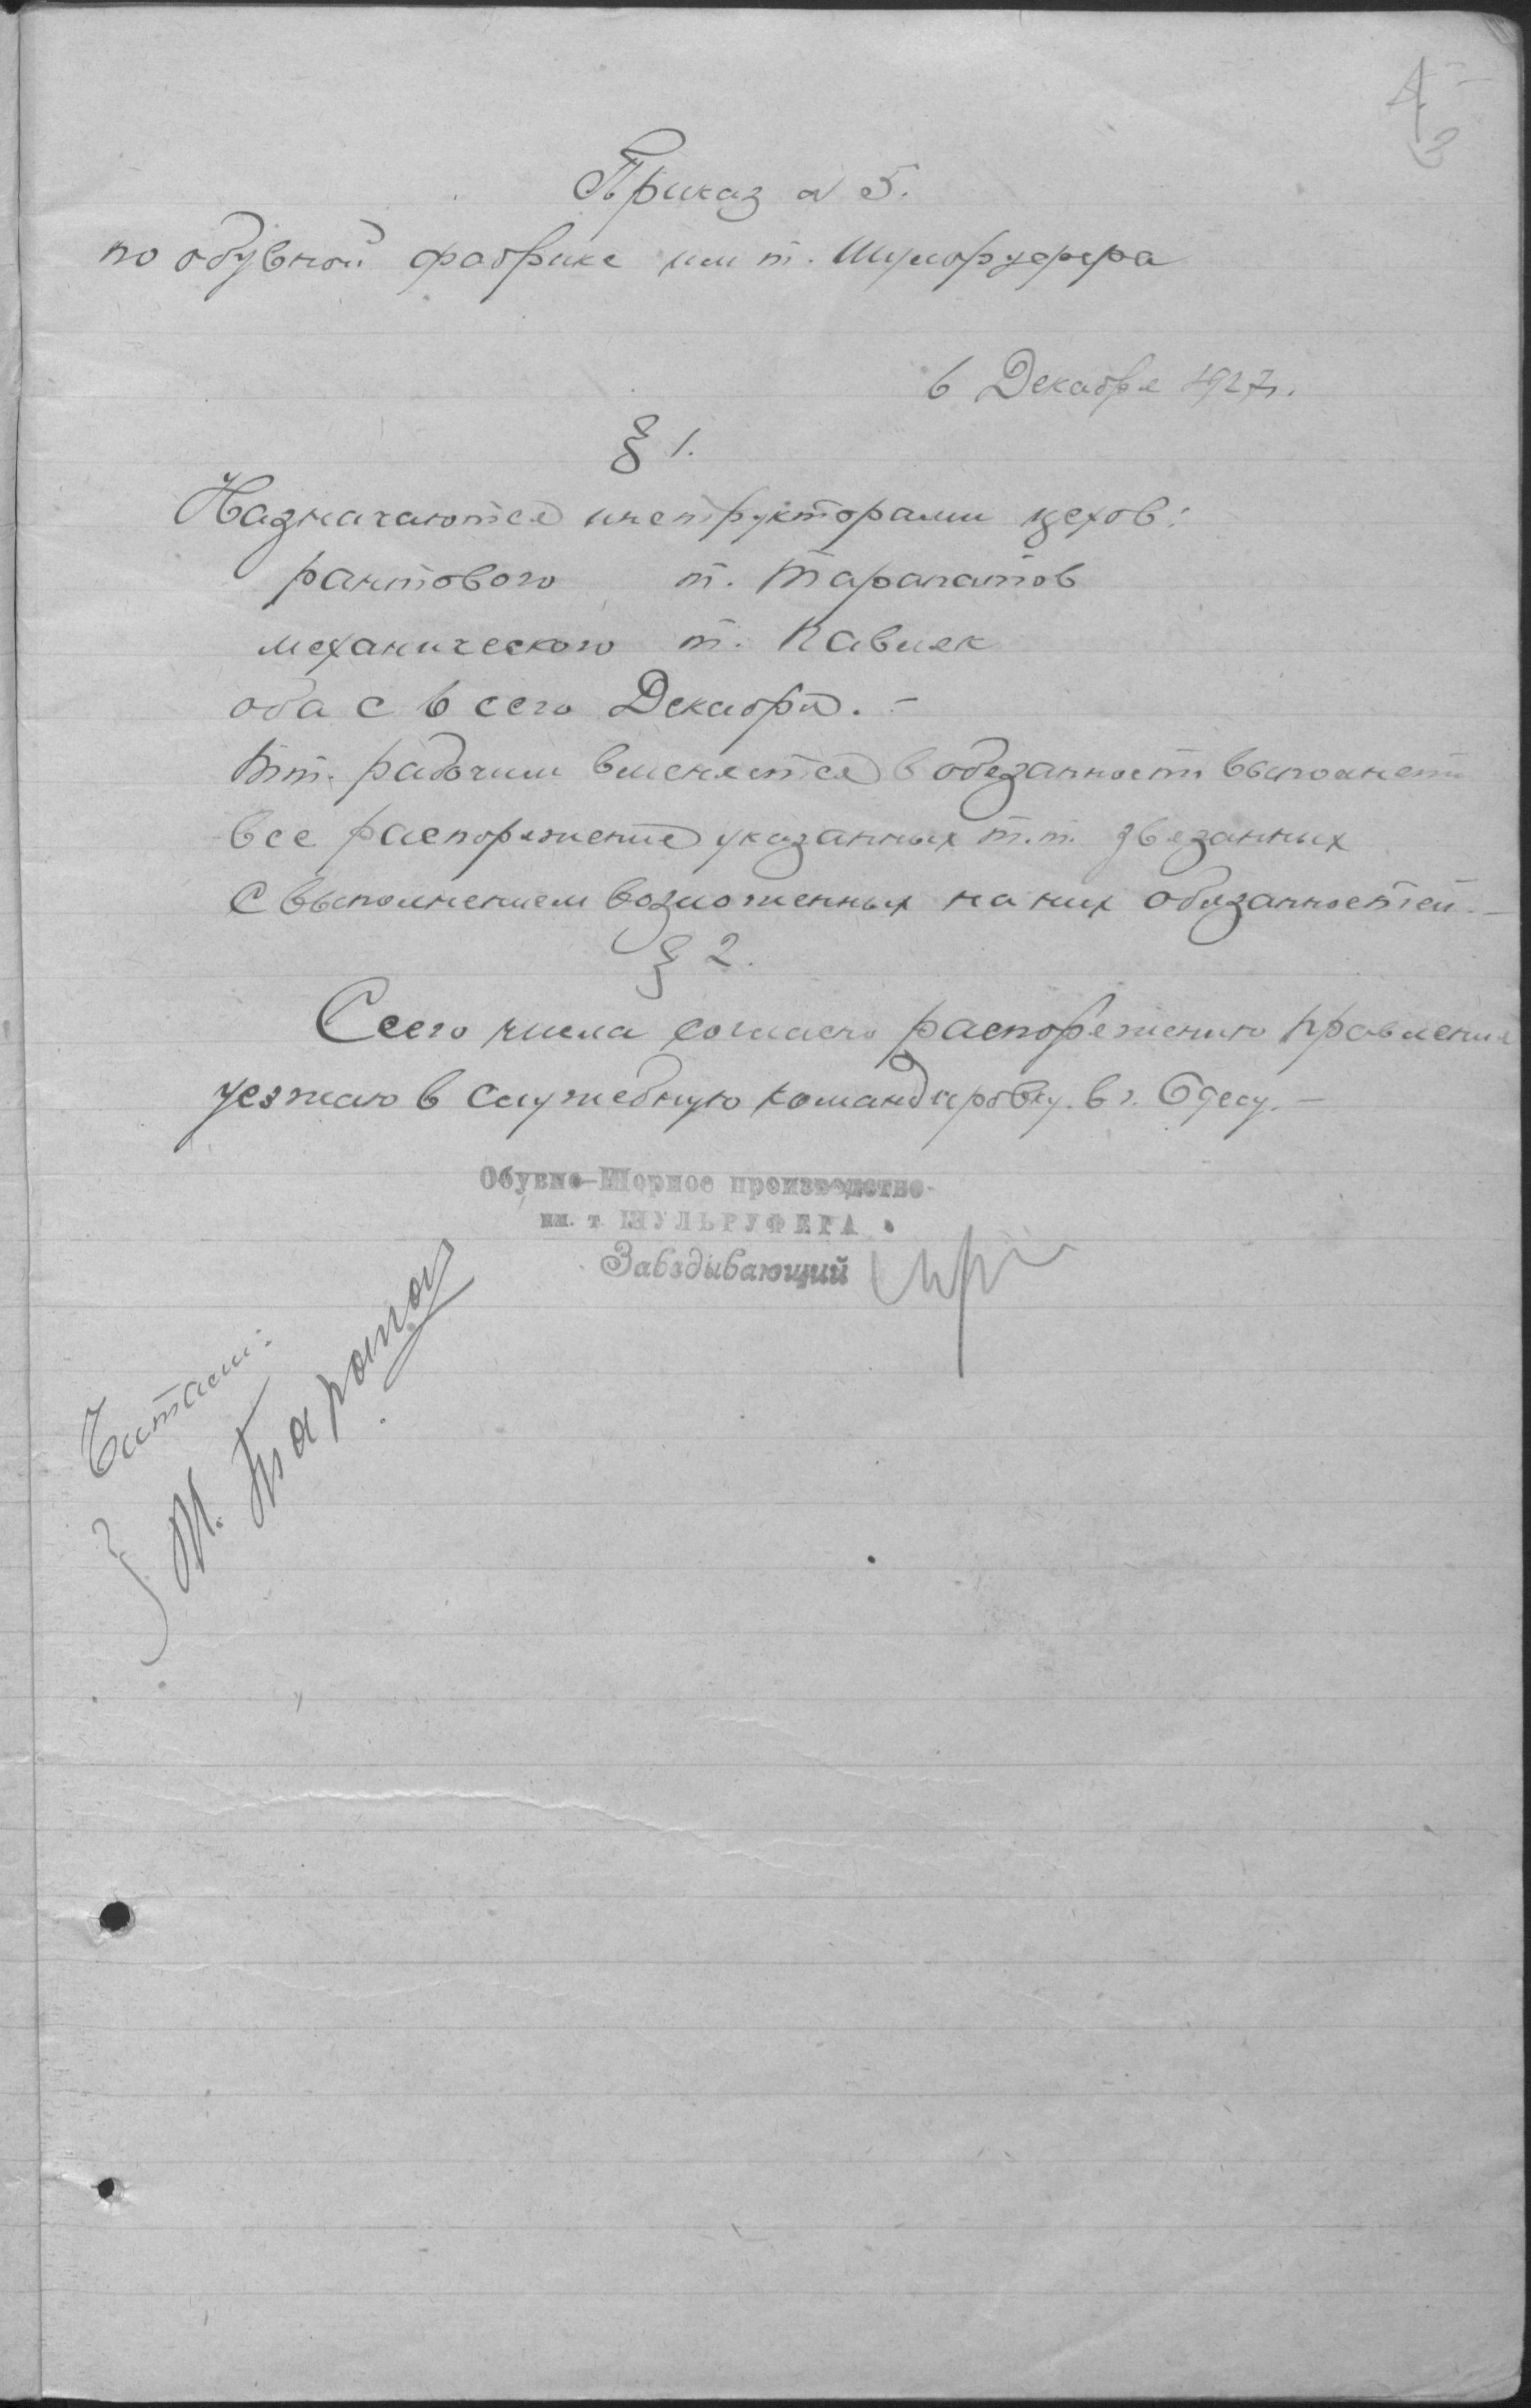 Приказ № 5.
по обувной фабрике им т. Шульруфера
6 Декабря 1927 г.
§ 1.
Назначаются инструкторами цехов:
рантового т. Тарапатов
механического т. Павляк
оба с 6 сего Декабря. –
Тт. рабочим вменяется в обезанность выполнеть
все распоряжение указанных т.т. звезанных
с выполнением возложенных на них обязанностей. –
§ 2.
С сего числа согласно распорежению правление
уезжаю в служебную командировку в г. Одесу. –
Обувно-Шорное производство
им. т. ШУЛЬРУФЕРА
Заведывающий
Читали:
М. Тарапа